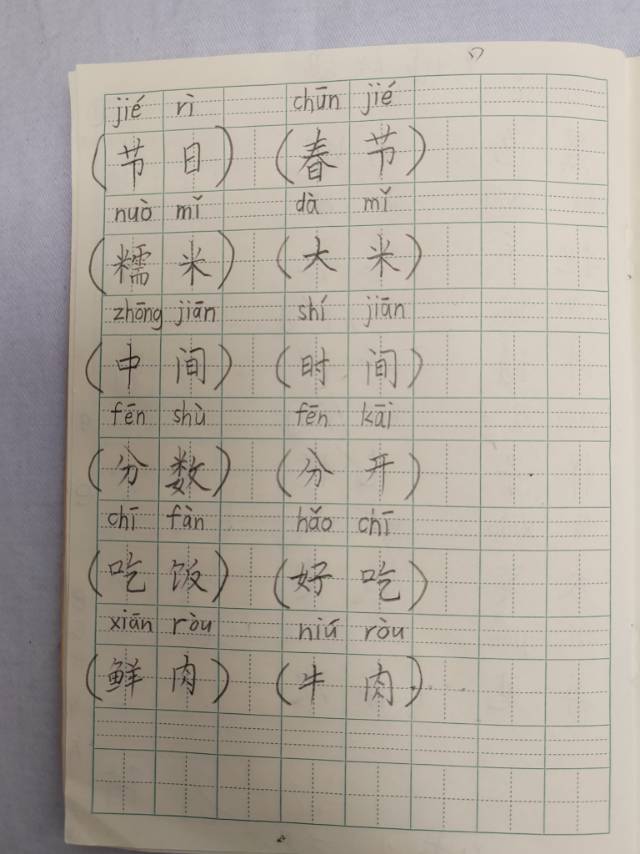 jié rì chūn jié
(节日) (春节)
nuò mǐ dà mǐ
(糯米) (大米)
zhōng jiān shí jiān
(中间) (时间)
fēn shù fēn kāi
(分数) (分开)
chī fàn hǎo chī
(吃饭) (好吃)
xiān ròu niú ròu
(鲜肉) (牛肉)